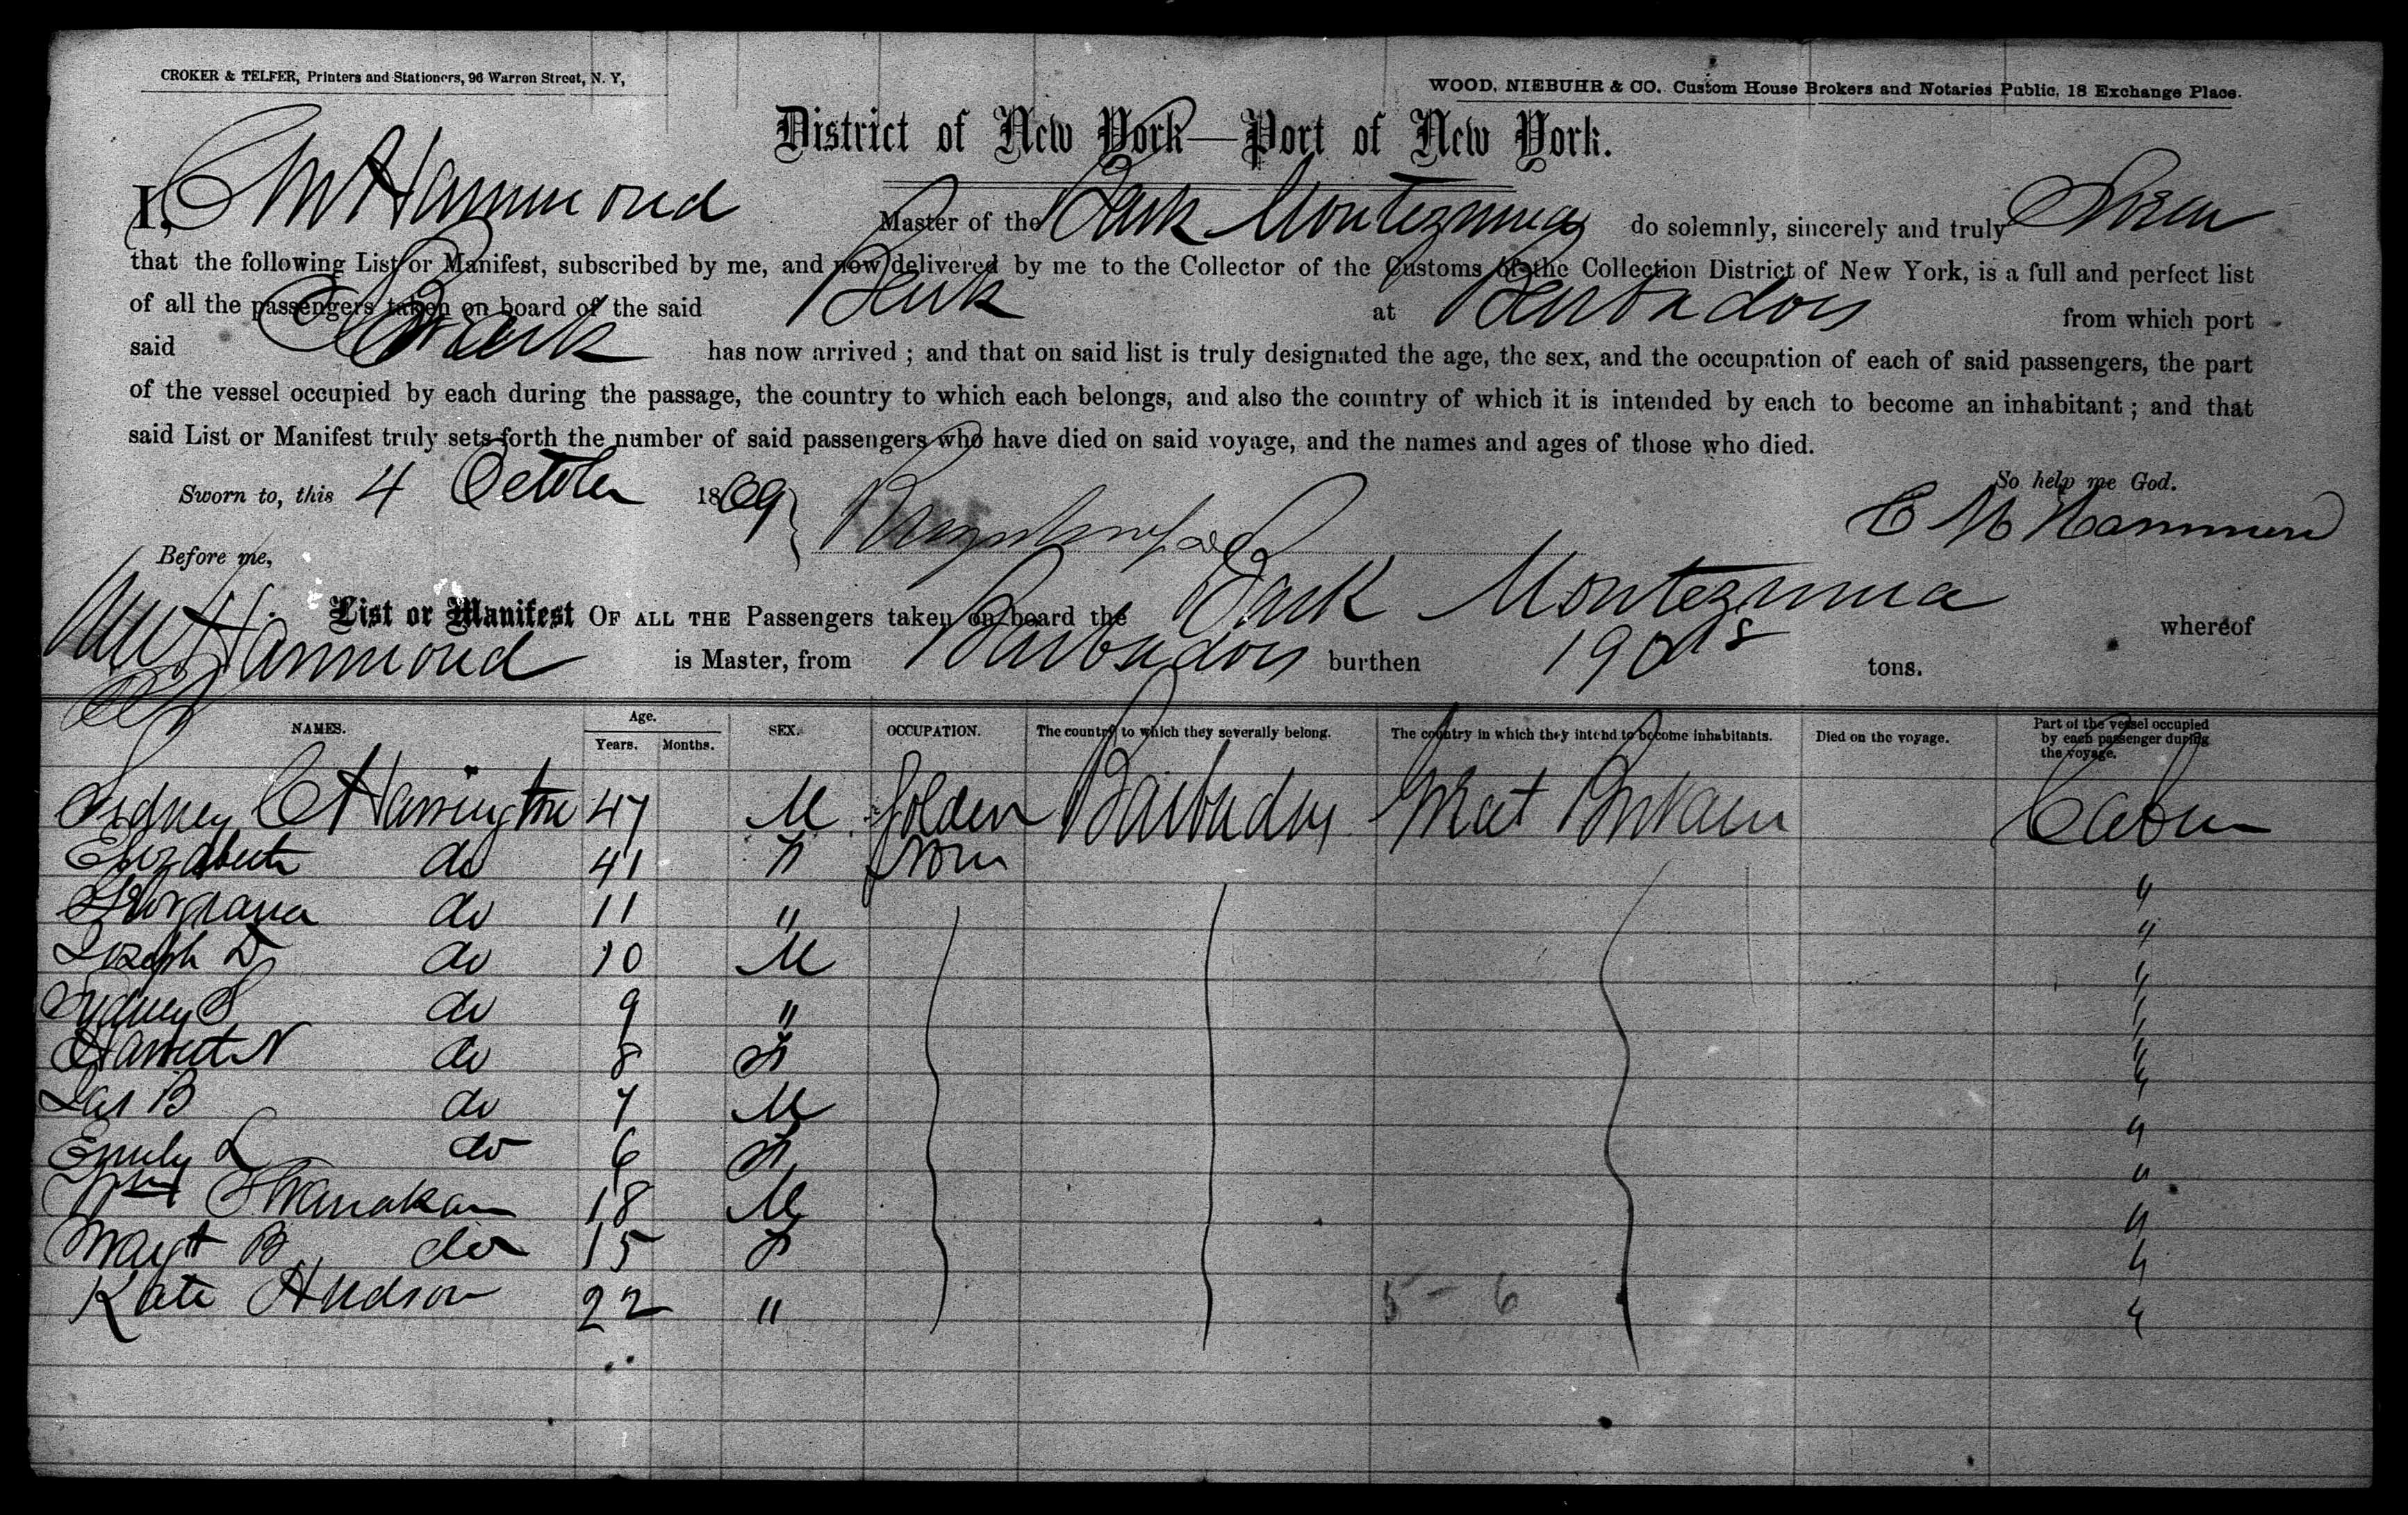 CROKER & TELFER, Printers and Stationers, 96 Warren Street, N. Y,
WOOD, NIEBUHR & CO. Custom House Brokers and Notaries Public, 18 Exchange Place.
District of New York—Port of New York.
I, C M Hammond Master of the Bark Montezuma do solemnly, sincerely and truly Swear
that the following List or Manifest, subscribed by me, and now delivered by me to the Collector of the Customs of the Collection District of New York, is a full and perfect list
of all the passengers taken on board of the said Bark at Barbados from which port
said Bark has now arrived ; and that on said list is truly designated the age, the sex, and the occupation of each of said passengers, the part
of the vessel occupied by each during the passage, the country to which each belongs, and also the country of which it is intended by each to become an inhabitant ; and that
said List or Manifest truly sets forth the number of said passengers who have died on said voyage, and the names and ages of those who died.
Sworn to, this 4 October 1869 So help me God.
Before me, C M Hammond
List or Manifest OF ALL THE Passengers taken on board the Bark Montezuma whereof
C M Hammond is Master, from Barbados burthen 190 tons.
NAMES. Age. Years. Months. SEX. OCCUPATION. The country to which they severally belong. The country in which they intend to become inhabitants. Died on the voyage. Part of the vessel occupied by each passenger during the voyage.
Sidney C Harrington 47 M Barbados Great Britain Cabin
Elizabeth do 41 F "
Georgiana do 11 " "
Joseph D do 10 M "
Sydney S do 9 " "
Harriet N do 8 F "
Jas B do 7 M "
Emily L do 6 F "
Wm 18 M "
Magt B do 15 F "
Kate Hudson 22 " 5 - 6 "